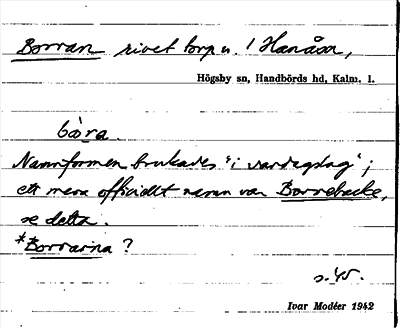 Borran rivet torp u. / Hanåsa,
Högsby sn, Handbörds hd, Kalm. l.
bòra.
Namnformen brukades "i vardagslag";
ett mera officiellt namn var Borrebacke,
se detta.
*Borrarna?
s. 45.
Ivar Modéer 1942